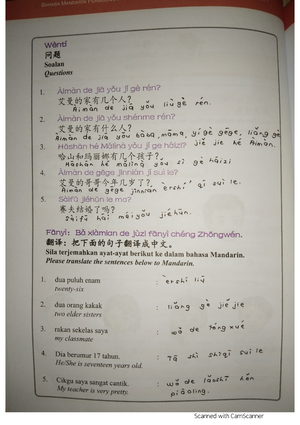 Wèntí
问题
Soalan
Questions
1. Àimàn de jiā yǒu jǐ gè rén?
艾曼的家有几个人?
Àimàn de jiā yǒu liù gè rén.
2. Àimàn de jiā yǒu shénme rén?
艾曼的家有什么人?
Àimàn de jiā yǒu bàba, māma, yí gè gēge, liǎng gè
jiě jie hé Àimàn
3. Hāshān hé Mǎlìnà yǒu jǐ ge háizi?
哈山和玛丽娜有几个孩子?
Hāshān hé mǎlìnà yǒu sì gè háizi
4. Àimàn de gēge jīnnián jǐ suì le?
艾曼的哥哥今年几岁了?
Àimàn de gēge jīnnián èrshí qī suì le.
5. Sàifū jiéhūn le ma?
赛夫结婚了吗?
Sàifū hái méiyǒu jiéhūn.
Fānyì: Bǎ xiàmian de jùzi fānyì chéng Zhōngwén.
翻译：把下面的句子翻译成中文。
Sila terjemahkan ayat-ayat berikut ke dalam bahasa Mandarin.
Please translate the sentences below to Mandarin.
1. dua puluh enam : èrshí liù
twenty-six
2. dua orang kakak : liǎng gè jiějie
two elder sisters
3. rakan sekelas saya : wǒ de tóngxué
my classmate
4. Dia berumur 17 tahun. : Tā shì shíqī suì le
He/She is seventeen years old.
5. Cikgu saya sangat cantik. : wǒ de lǎoshī hěn
My teacher is very pretty. piàoliang.
Scanned with CamScanner